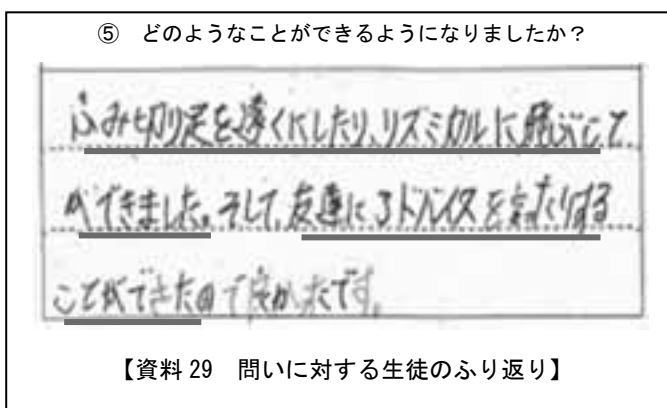 ⑤ どのようなことができるようになりましたか?
ふみ切り足を遠くにしたり、リズミカルに飛ぶこと
ができました。そして、友達にアドバイスを言ったりする
ことができたので良かったです。
【資料 29 問いに対する生徒のふり返り】